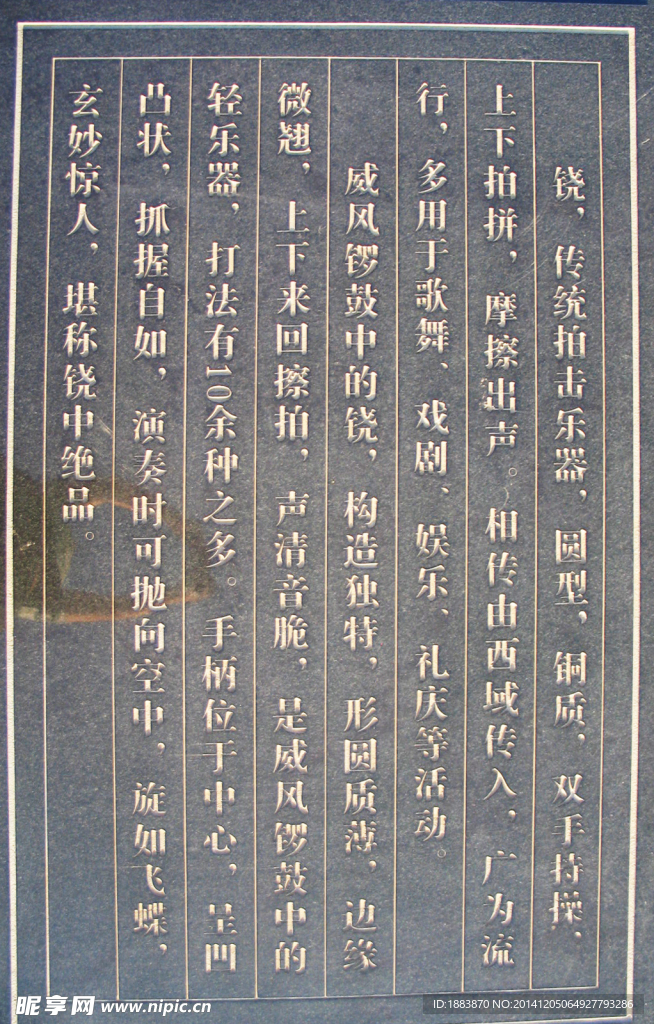 铙，传统拍击乐器，圆型，铜质，双手持操，
上下拍拼，摩擦出声。相传由西域传入，广为流
行，多用于歌舞、戏剧、娱乐、礼庆等活动。
威风锣鼓中的铙，构造独特，形圆质薄，边缘
微翘，上下来回擦拍，声清音脆，是威风锣鼓中的
轻乐器，打法有10余种之多。手柄位于中心，呈凹
凸状，抓握自如，演奏时可抛向空中，旋如飞蝶，
玄妙惊人，堪称铙中绝品。
昵享网 www.nipic.cn
ID:1883870 NO:20141205064927793286